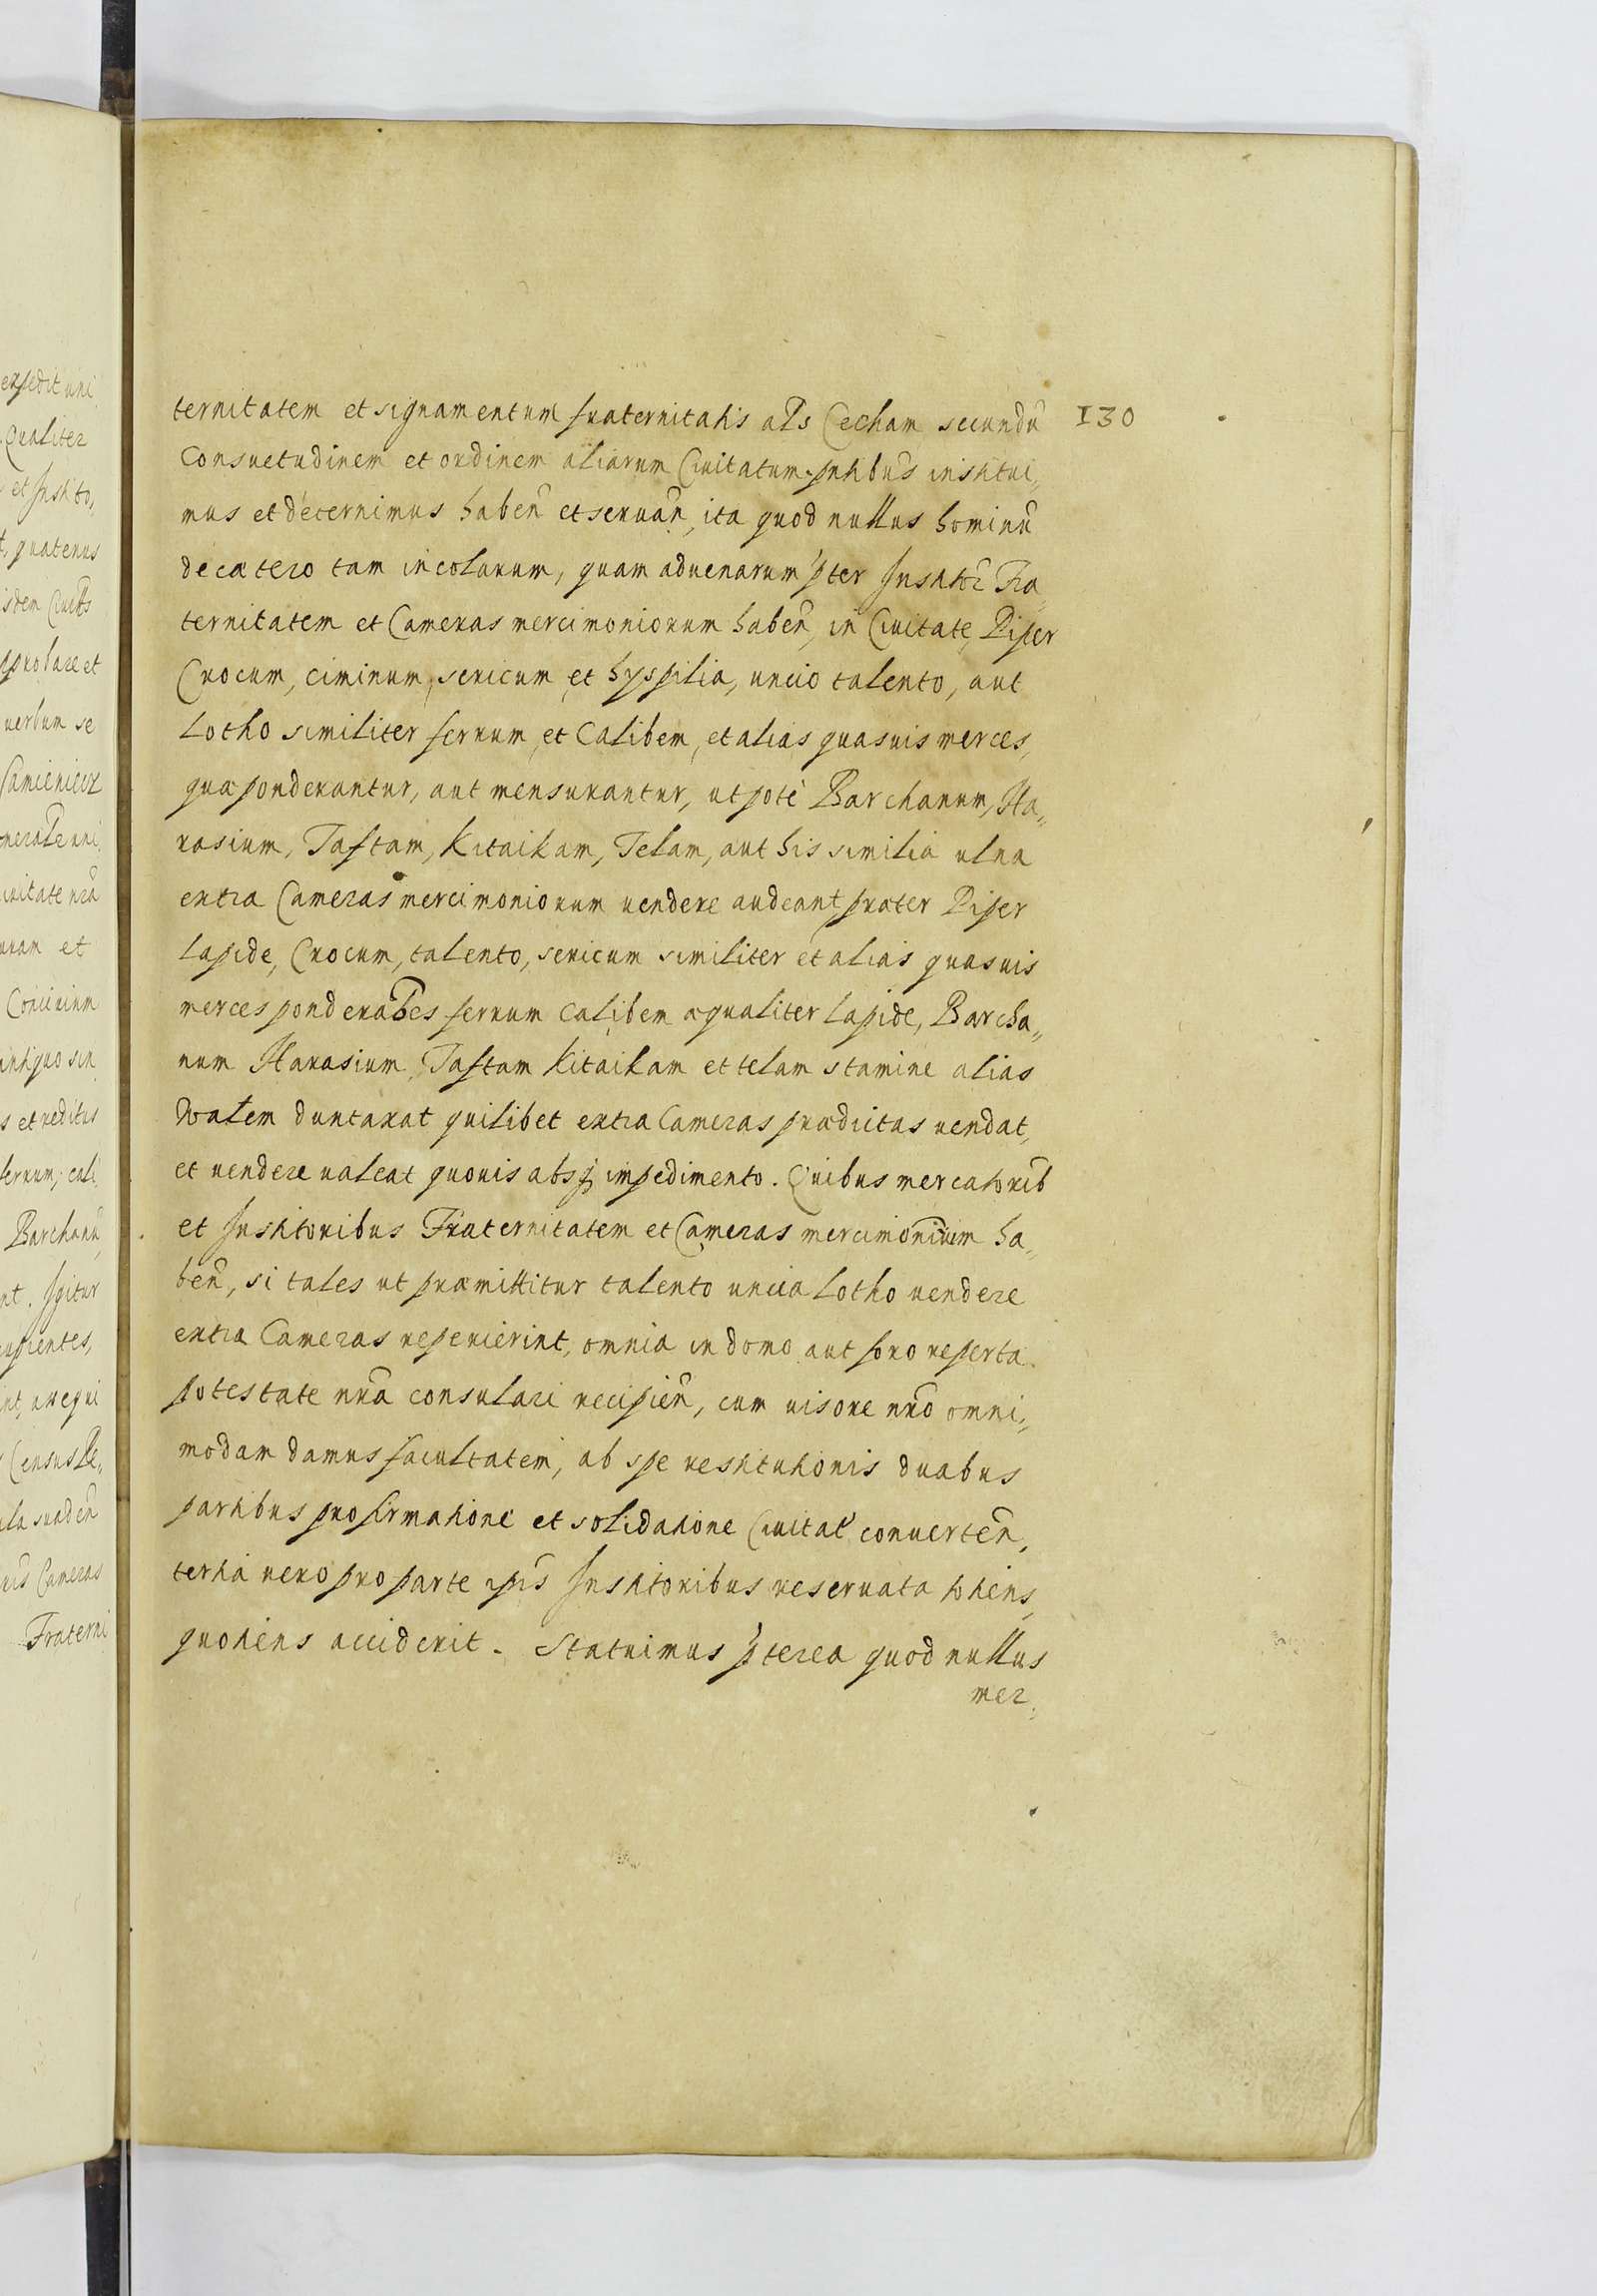 ternitatem et signamentum fraternitatis als Cecham secundũ 130
Consuetudinem et ordinem aliarum Civitatum pntibus institui,
mus et decernimus habeñ et servañ, ita quod nullus hominũ
de cætero tam incolarum, quam advenarum pter Institor Fra
ternitatem et Cameras mercimoniorum habeñ, in Civitate, Piper
Crocum, ciminum, sericum et hyspilia, uncio talento, aut
Lotho similiter ferrum, et Calibem, et alias quasvis merces,
quæ ponderantur, aut mensurantur, utpote Barchanum, Ha„
rasium, Taftam, Kitaikam, Telam, aut his similia ulna
extra Cameras mercimoniorum vendere audeant præter Piper
Lapide, Crocum, talento, sericum similiter et alias quasvis
merces ponderabes ferrum calibem æqualiter lapide, Barcha„
num Harasium, Taftam Kitaikam et telam stamine alias
Walem duntaxat quilibet extra Cameras prædictas vendat,
et vendere valeat quovis absq impedimento. Quibus mercatorib
et Institoribus Fraternitatem et Cameras mercimonium ha„
beñ, si tales ut præmittitur talento uncia Lotho vendere
extra Cameras reperierint, omnia in domo aut foro reperta
potestate nra consulari recipieñ, cum visore nro omni„
modam damus facultatem, ab spe restitutionis duabus
partibus pro firmatione et solidatione Civitat converteñ,
tertia vero pro parte ipis Institoribus reservata totiens,
quotiens acciderit. Statuimus pterea quod nullus
mer